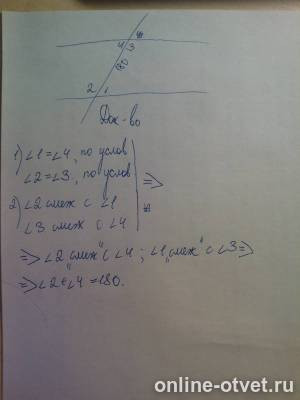 4 3
180
2 1
Док-во
1) ∠1=∠4, по услов
∠2=∠3, по услов
2) ∠2 смеж с ∠1
∠3 смеж с ∠4
=> ∠2 "смеж" с ∠4 ; ∠1 "смеж" с ∠3 =>
=> ∠2 ∠4 =180.
online-otvet.ru